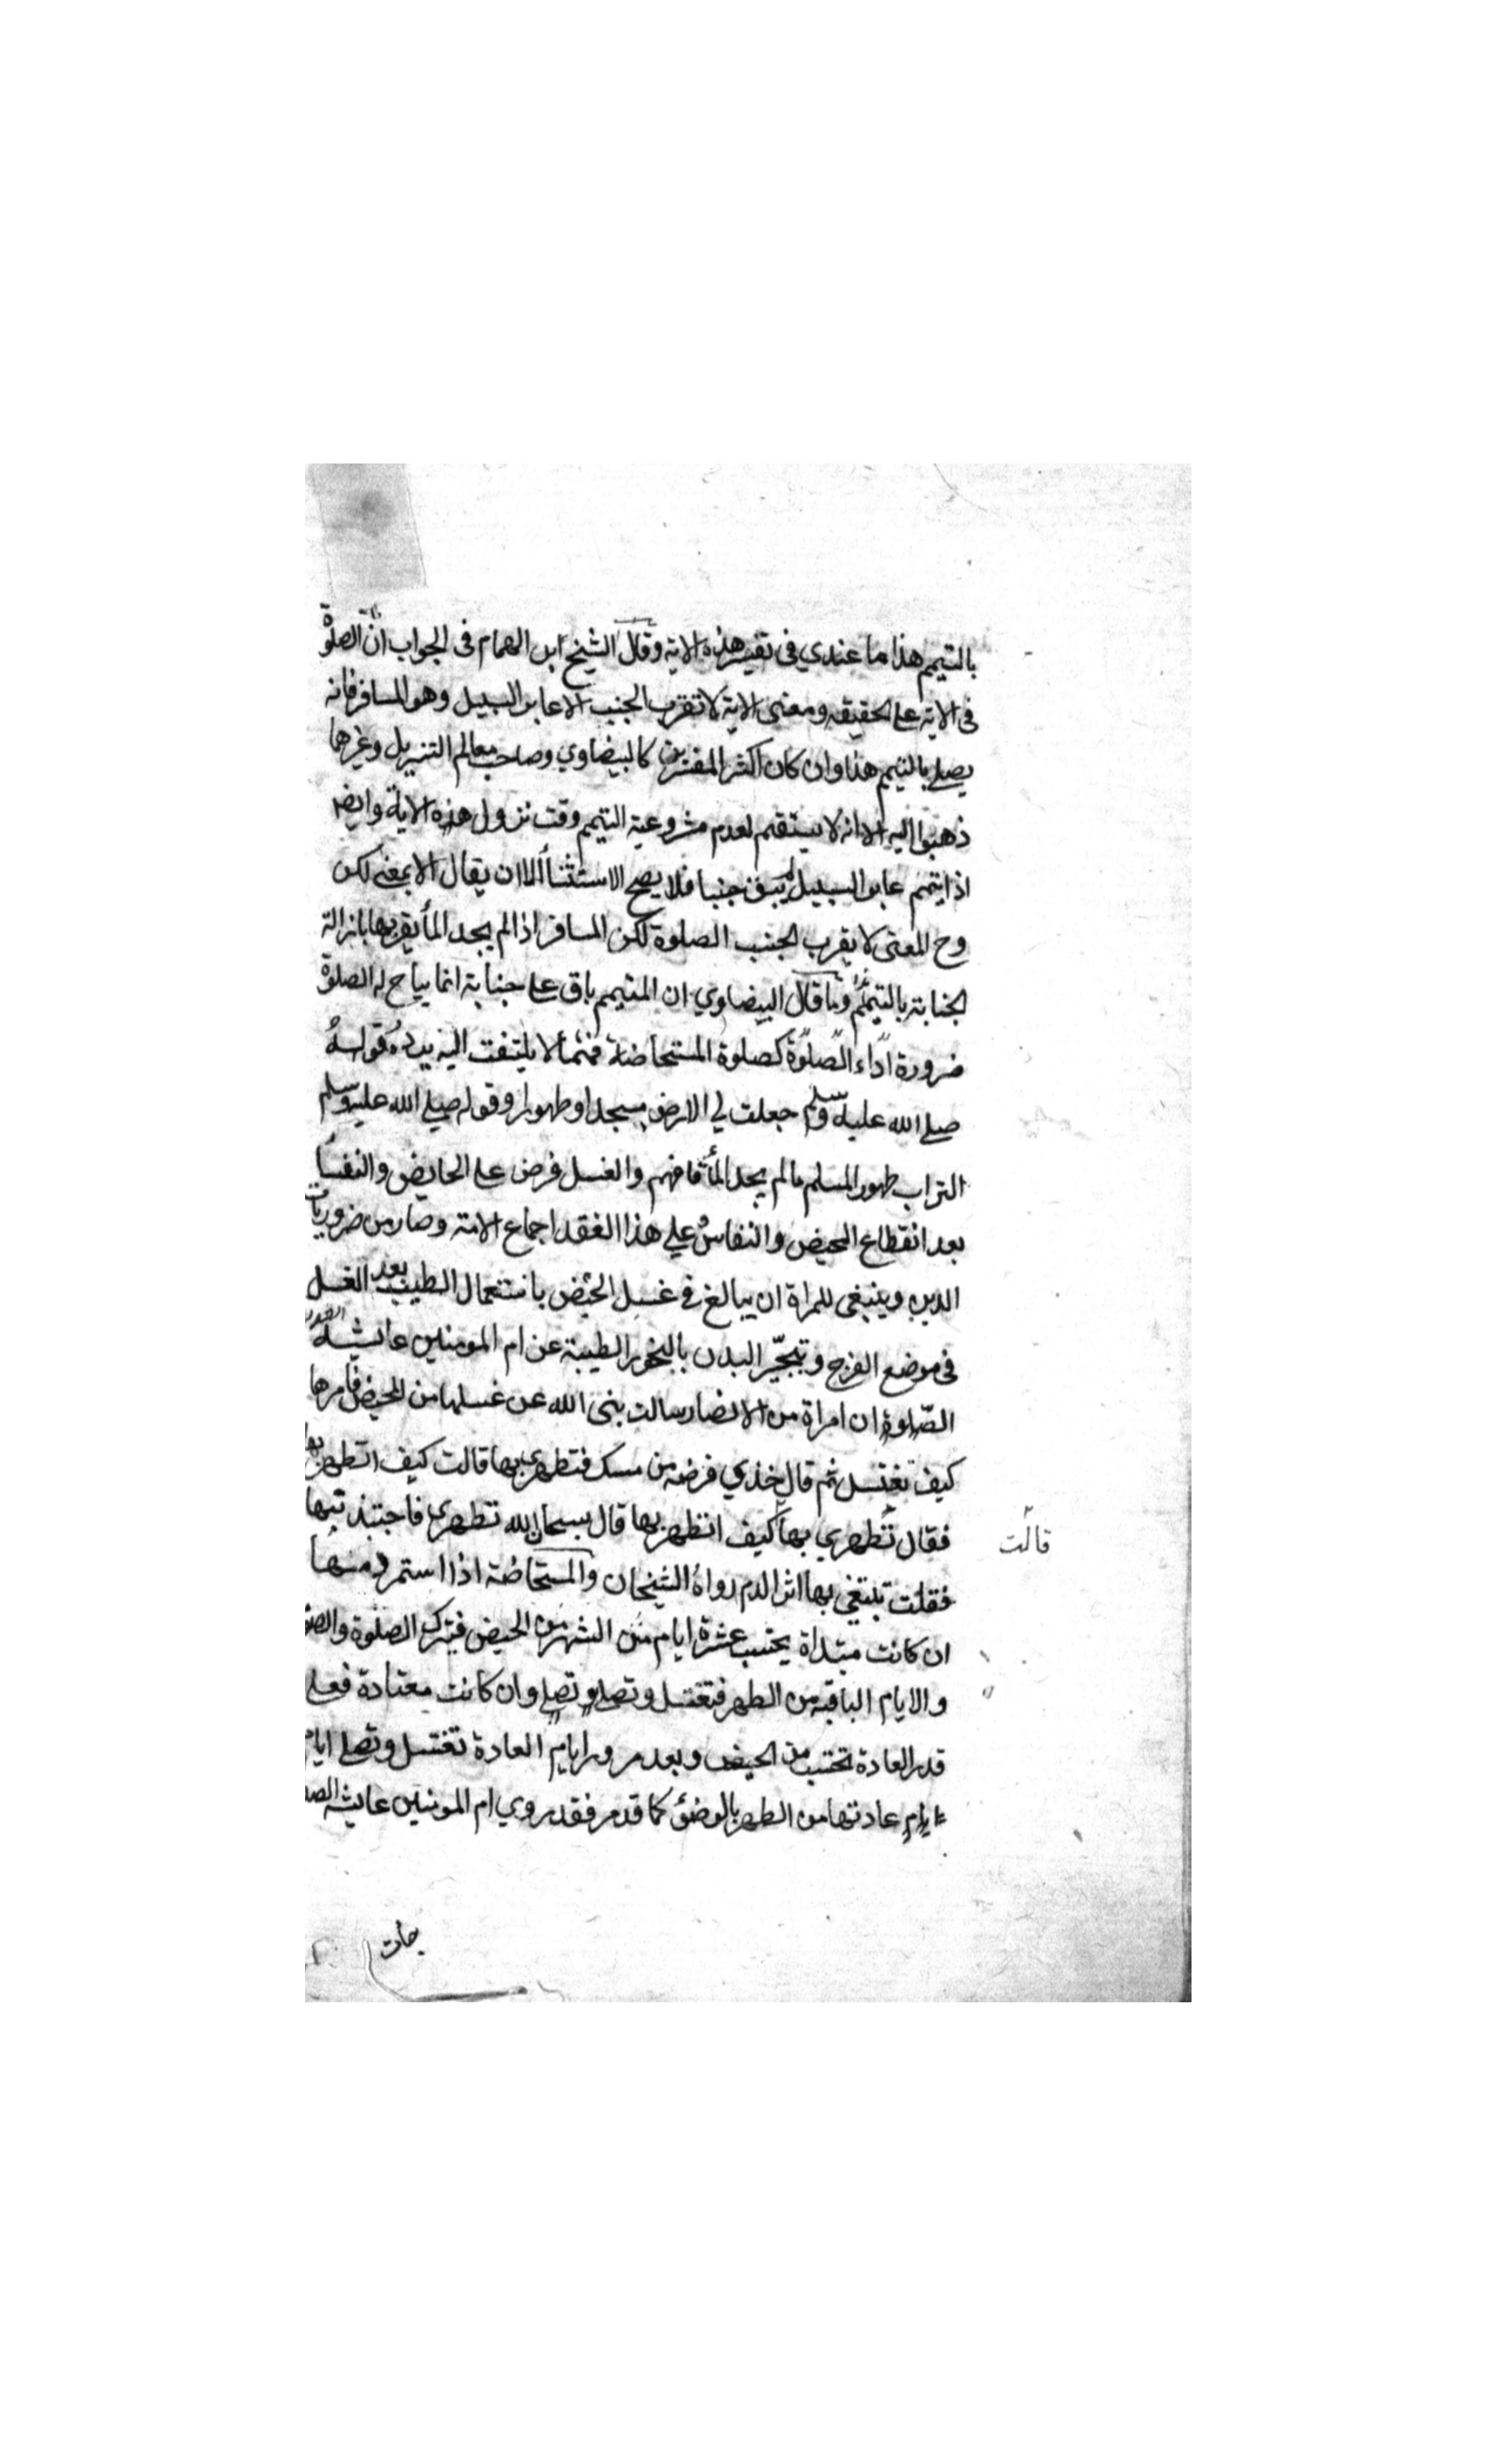 بالتيمم هذا ما عندي في تفسير هذه الاية وقال الشيخ ابن الهمام في الجواب ان الصلوة
في الاية على الحقيقة ومعنى الاية لا تقرب الجنب الا عابر السبيل وهو المسافر فانه
يصلي بالتيمم هذا وان كان اكثر المفسرين كالبيضاوي وصاحب معالم التنزيل وغيرهما
ذهبوا اليه الا انه لا يستقيم لعدم مشروعية التيمم وقت نزول هذه الاية وايضا
اذا تيمم عابر السبيل لم يبق جنبا فلا يصح الاستثنأ الا ان يقال الا بمعنى لكن
وح المعنى لا يقرب الجنب الصلوة لكن المسافر اذا لم يجد المأ يقربها بازالة
الجنابة بالتيمم وما قال البيضاوي ان المتيمم باق على جنابة انما يباح له الصلوة
ضرورة اداء الصلوة كصلوة المستحاضة فمما لا يلتفت اليه يرده قوله
صلى الله عليه وسلم جعلت لي الارض مسجدا وطهورا وقوله صلى الله عليه وسلم
التراب طهور المسلم ما لم يجد المأ فافهم والغسل فرض على الحايض والنفسأ
بعد انقطاع الحيض والنفاس وعلى هذا العقد اجماع الامة وصار من ضروريات
الدين وينبغي للمراة ان يبالغ في غسل الحيض باستعمال الطيب بعد الغسل
في موضع الفرج وتبخير البدن بالبخور الطيبة عن ام المومنين عايشة
الصلوة ان امراة من الانصار سالت نبى الله عن غسلها من المحيض فامرها
كيف تغتسل ثم قال خذي فرصة من مسك فتطهري بها قالت كيف اتطهر بها
فقال تطهري بها كيف اتطهر بها قال سبحان الله تطهري فاجتذبتها
قالت
فقلت تبتغي بها اثر الدم رواه الشيخان والمستحاضة اذا استمر دمها
ان كانت مبتداة يحتسب عشرة ايام من الشهر من الحيض فيترك الصلوة والصو
والايام الباقية من الطهر فتغتسل وتصلي وتصلي وان كانت معتادة فعلى
قدر العادة تحتسب من الحيض وبعد مرور ايام العادة تغتسل وتصلي ايام
ايام عادتها من الطهر بالوضؤ كما قد مر فقد روي ام المومنين عايشة الصد